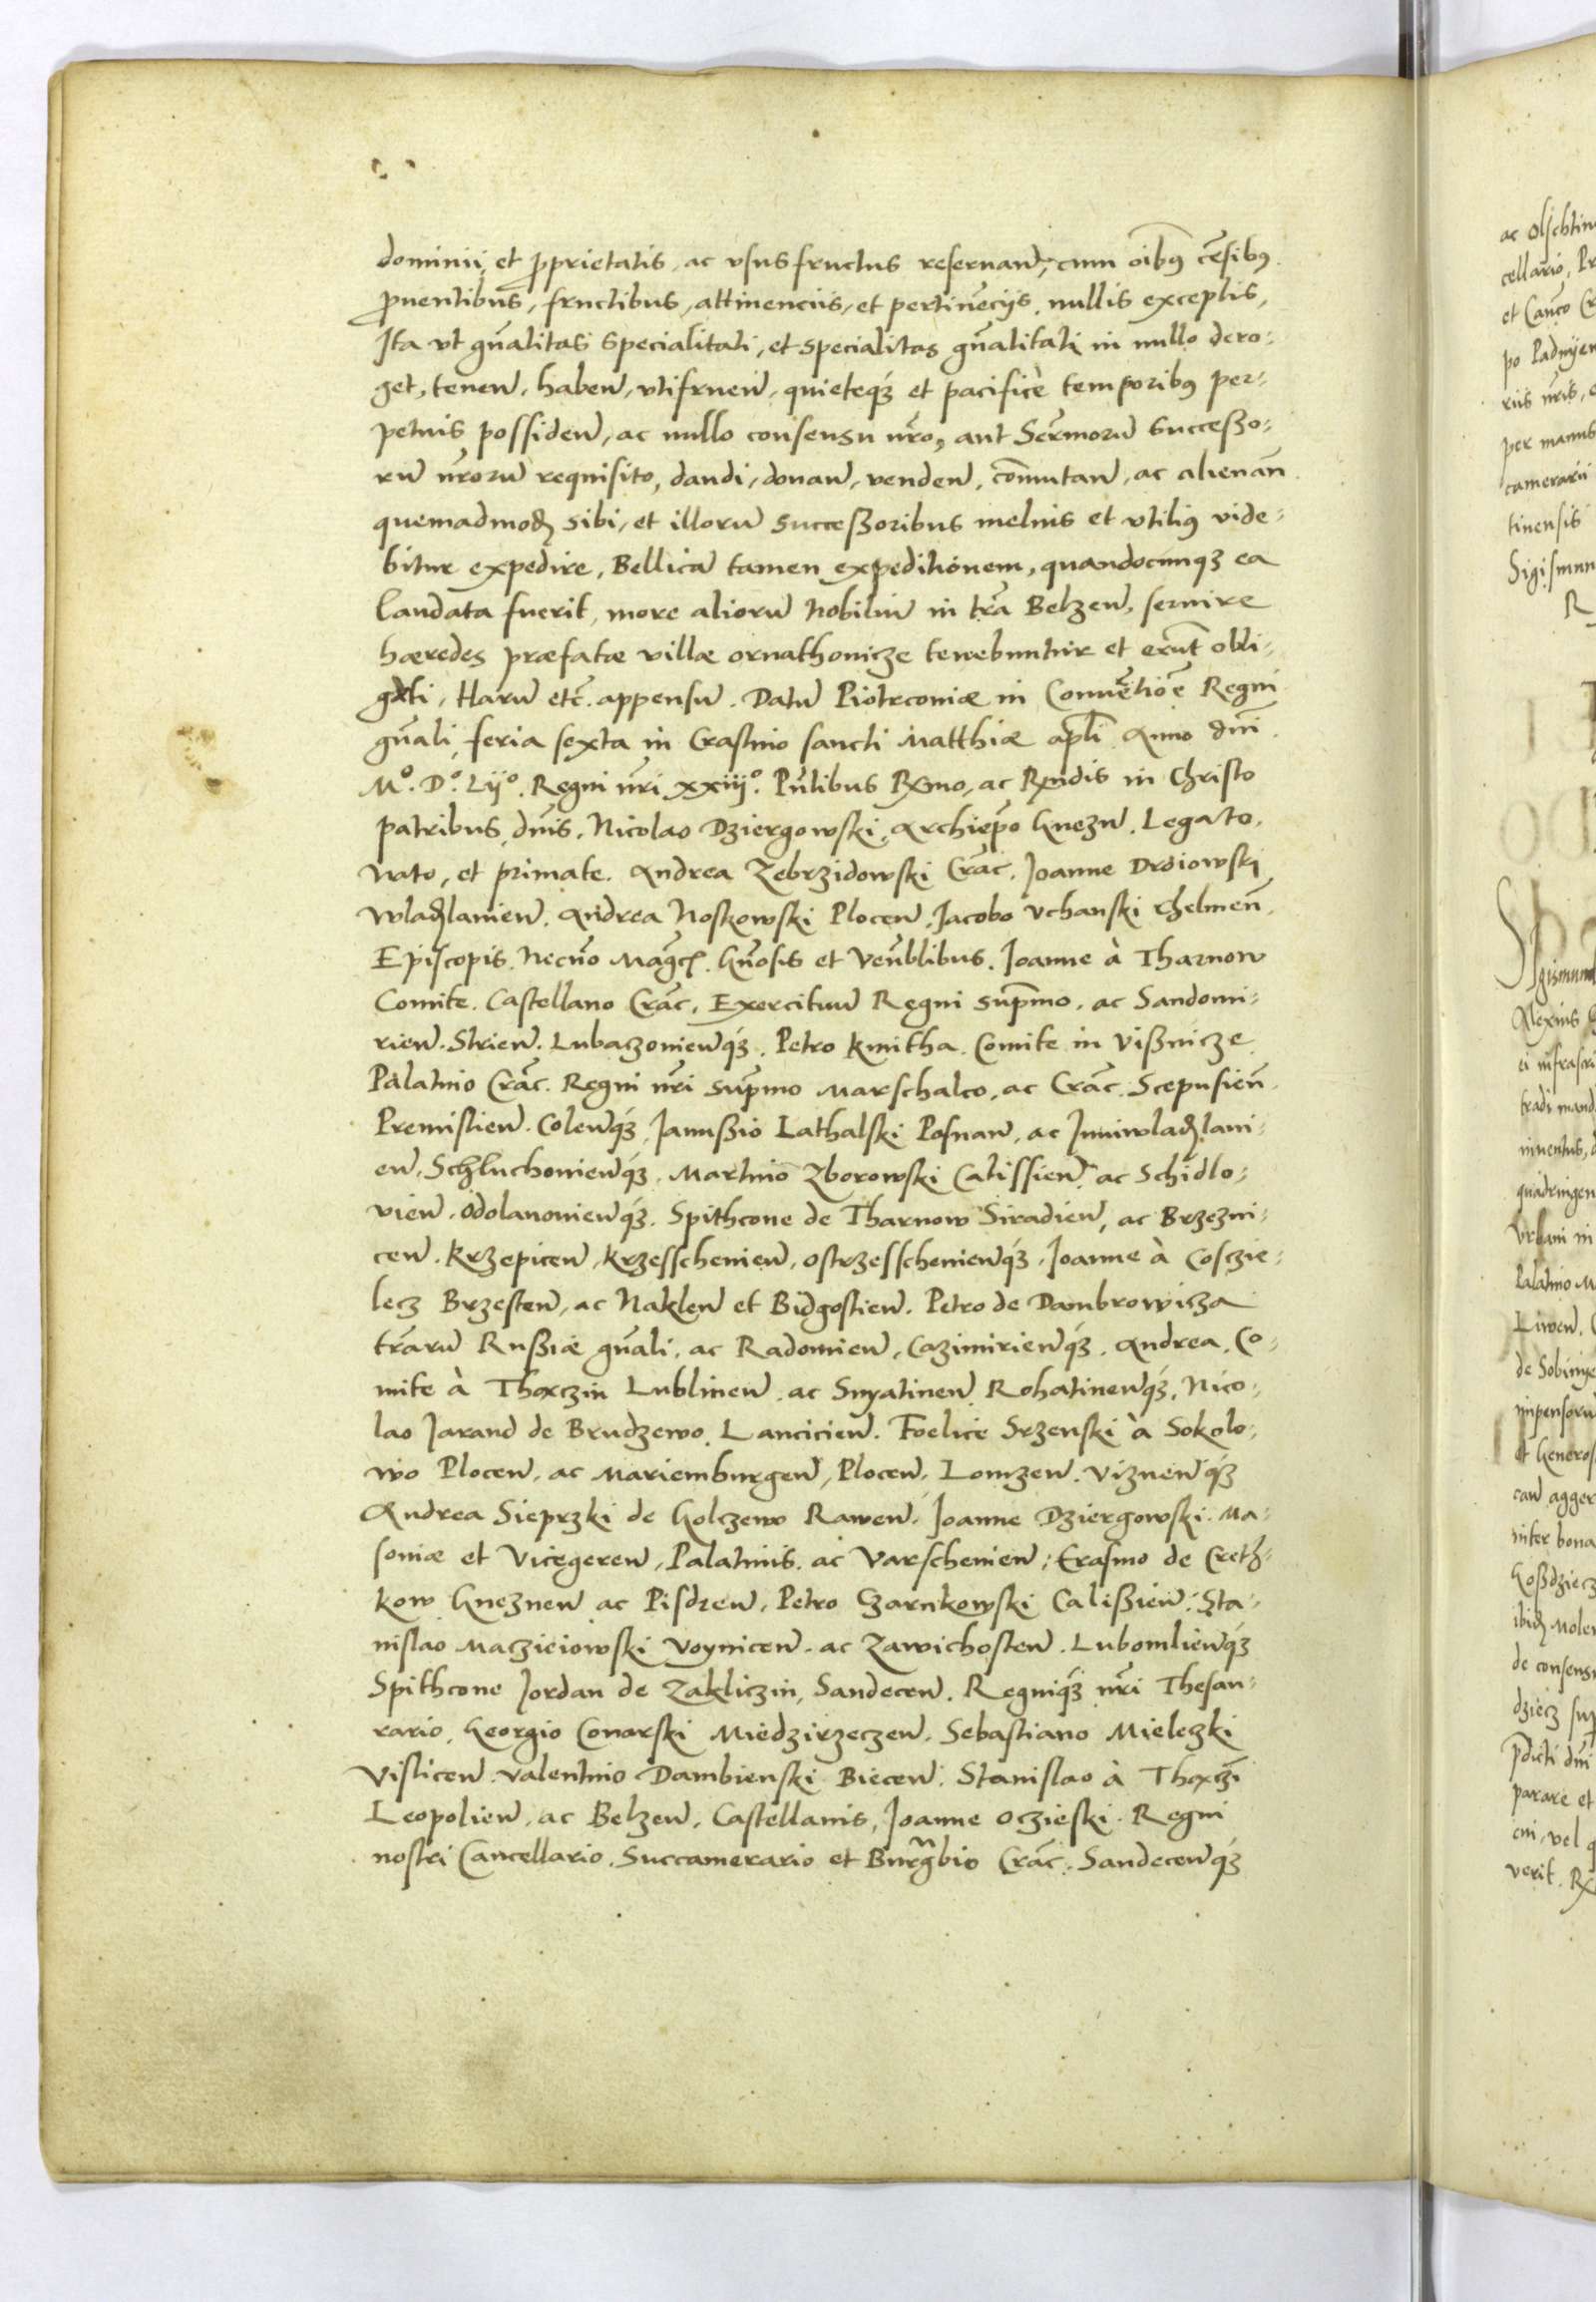 dominii, et ꝓprietatis, ac vsusfructus reseruan̄, cum oībꝰ cēsibꝰ
ꝓuentibus, fructibus, attinenciis, et pertinēcijs, nullis exceptis,
Ita vt gn̄alitas specialitati, et specialitas gn̄alitati in nullo dero-
get, tenen̄, haben̄, vtifruen̄, quieteqꝫ et pacificè temporibꝰ per-
petuis possiden̄, ac nullo consensu nr̄o, aut Serm̄orū Successo-
rū nr̄orū requisito, dandi, donan̄, venden̄, cōmutan̄, ac alienan̄
quemadmodꝫ sibi, et illorū successoribus melius et vtiliꝰ vide-
bitur expedire, Bellicā tamen expeditionem, quandocunqꝫ ea
laudata fuerit, more aliorū Nobiliū in tr̄a Belzen̄, seruire
hæredes præfatæ villæ ornathouicze tenebuntur et erūt obli-
gati, Harū etc̄. appensū. Datū Piotrcouiæ in Conuētiōe Regni
gn̄ali, feria sexta in Crastino sancti Matthiæ apl̄i Anno dn̄i
Mº. Dº. Lijº. Regni nr̄i xxiijº. Pn̄tibus Rx̄mo, ac Rx̄ndis in Christo
patribus, dn̄is, Nicolao Dziergowski, Archiep̄o Gnezn̄. Legato
Nato, et primate. Andrea Zebrzidowski Crac̄. Joanne Droiowski
Wladꝫlauien̄. Andrea Noskowski Plocen̄. Jacobo Vchanski Chelmen̄.
Episcopis. Necnō Mag̃cꝭ. Gn̄osis et Ven̄blibus. Joanne à Tharnow
Comite. Castellano Crac̄. Exercituū Regni sup̄mo. ac Sandomi-
rien̄. Strien̄. Lubaczouien̄qꝫ. Petro Kmitha. Comite in Vissnicze
Palatino Crac̄. Regni nr̄i sup̄mo Marschalco, ac Crac̄. Scepusien̄.
Premislien̄. Colen̄qꝫ, Janussio Lathalski Posnan̄, ac Juniwladꝫlaui-
en̄. Schluchouien̄qꝫ. Martino Zborowski Calissien̄. ac Schidlo-
vien̄. Odolanouien̄qꝫ. Spithcone de Tharnow Siradien̄, ac Brzezni-
cen̄. Krzepicen̄, Krzesschenien̄, Ostrzesschenien̄qꝫ. Joanne à Cosczie-
lecz Brzesten̄, ac Naklen̄ et Bidgostien̄. Petro de Dambrowicza
tr̄arū Russiæ gn̄ali, ac Radomien̄, Cazimirien̄qꝫ. Andrea. Co-
mite à Thaxczin Lublinen̄. ac Snyatinen̄ Rohatinen̄qꝫ. Nico-
lao Jarand de Brudzewo. Lancicien̄. Foelice Srzenski à Sokolo-
wo Plocen̄. ac Mariemburgen̄, Plocen̄. Lomzen̄. Viznen̄qꝫ
Andrea Sieprzki de Golczewo Rawen̄. Joanne Dziergowski. Ma-
soniæ et Vicegeren̄. Palatinis. ac Varschenien̄; Erasmo de Cretꝫ-
kow Gneznen̄ ac Pisdren̄. Petro Czarnkowski Calissien̄. Sta-
nislao Maczieiowski Voynicen̄. ac Zawichosten̄. Lubomlien̄qꝫ
Spithcone Jordan de Zakliczin, Sandecen̄. Regniqꝫ nr̄i Thesau-
rario, Georgio Conarski Miedzirzeczen̄. Sebastiano Mieleczki
Vislicen̄. Valentino Dambienski Biecen̄. Stanislao à Thaxczī
Leopolien̄. ac Belzen̄. Castellanis, Joanne Oczieski. Regni
nostri Cancellario. Succamerario et Burgr̄bio Crac̄. Sandecen̄qꝫ